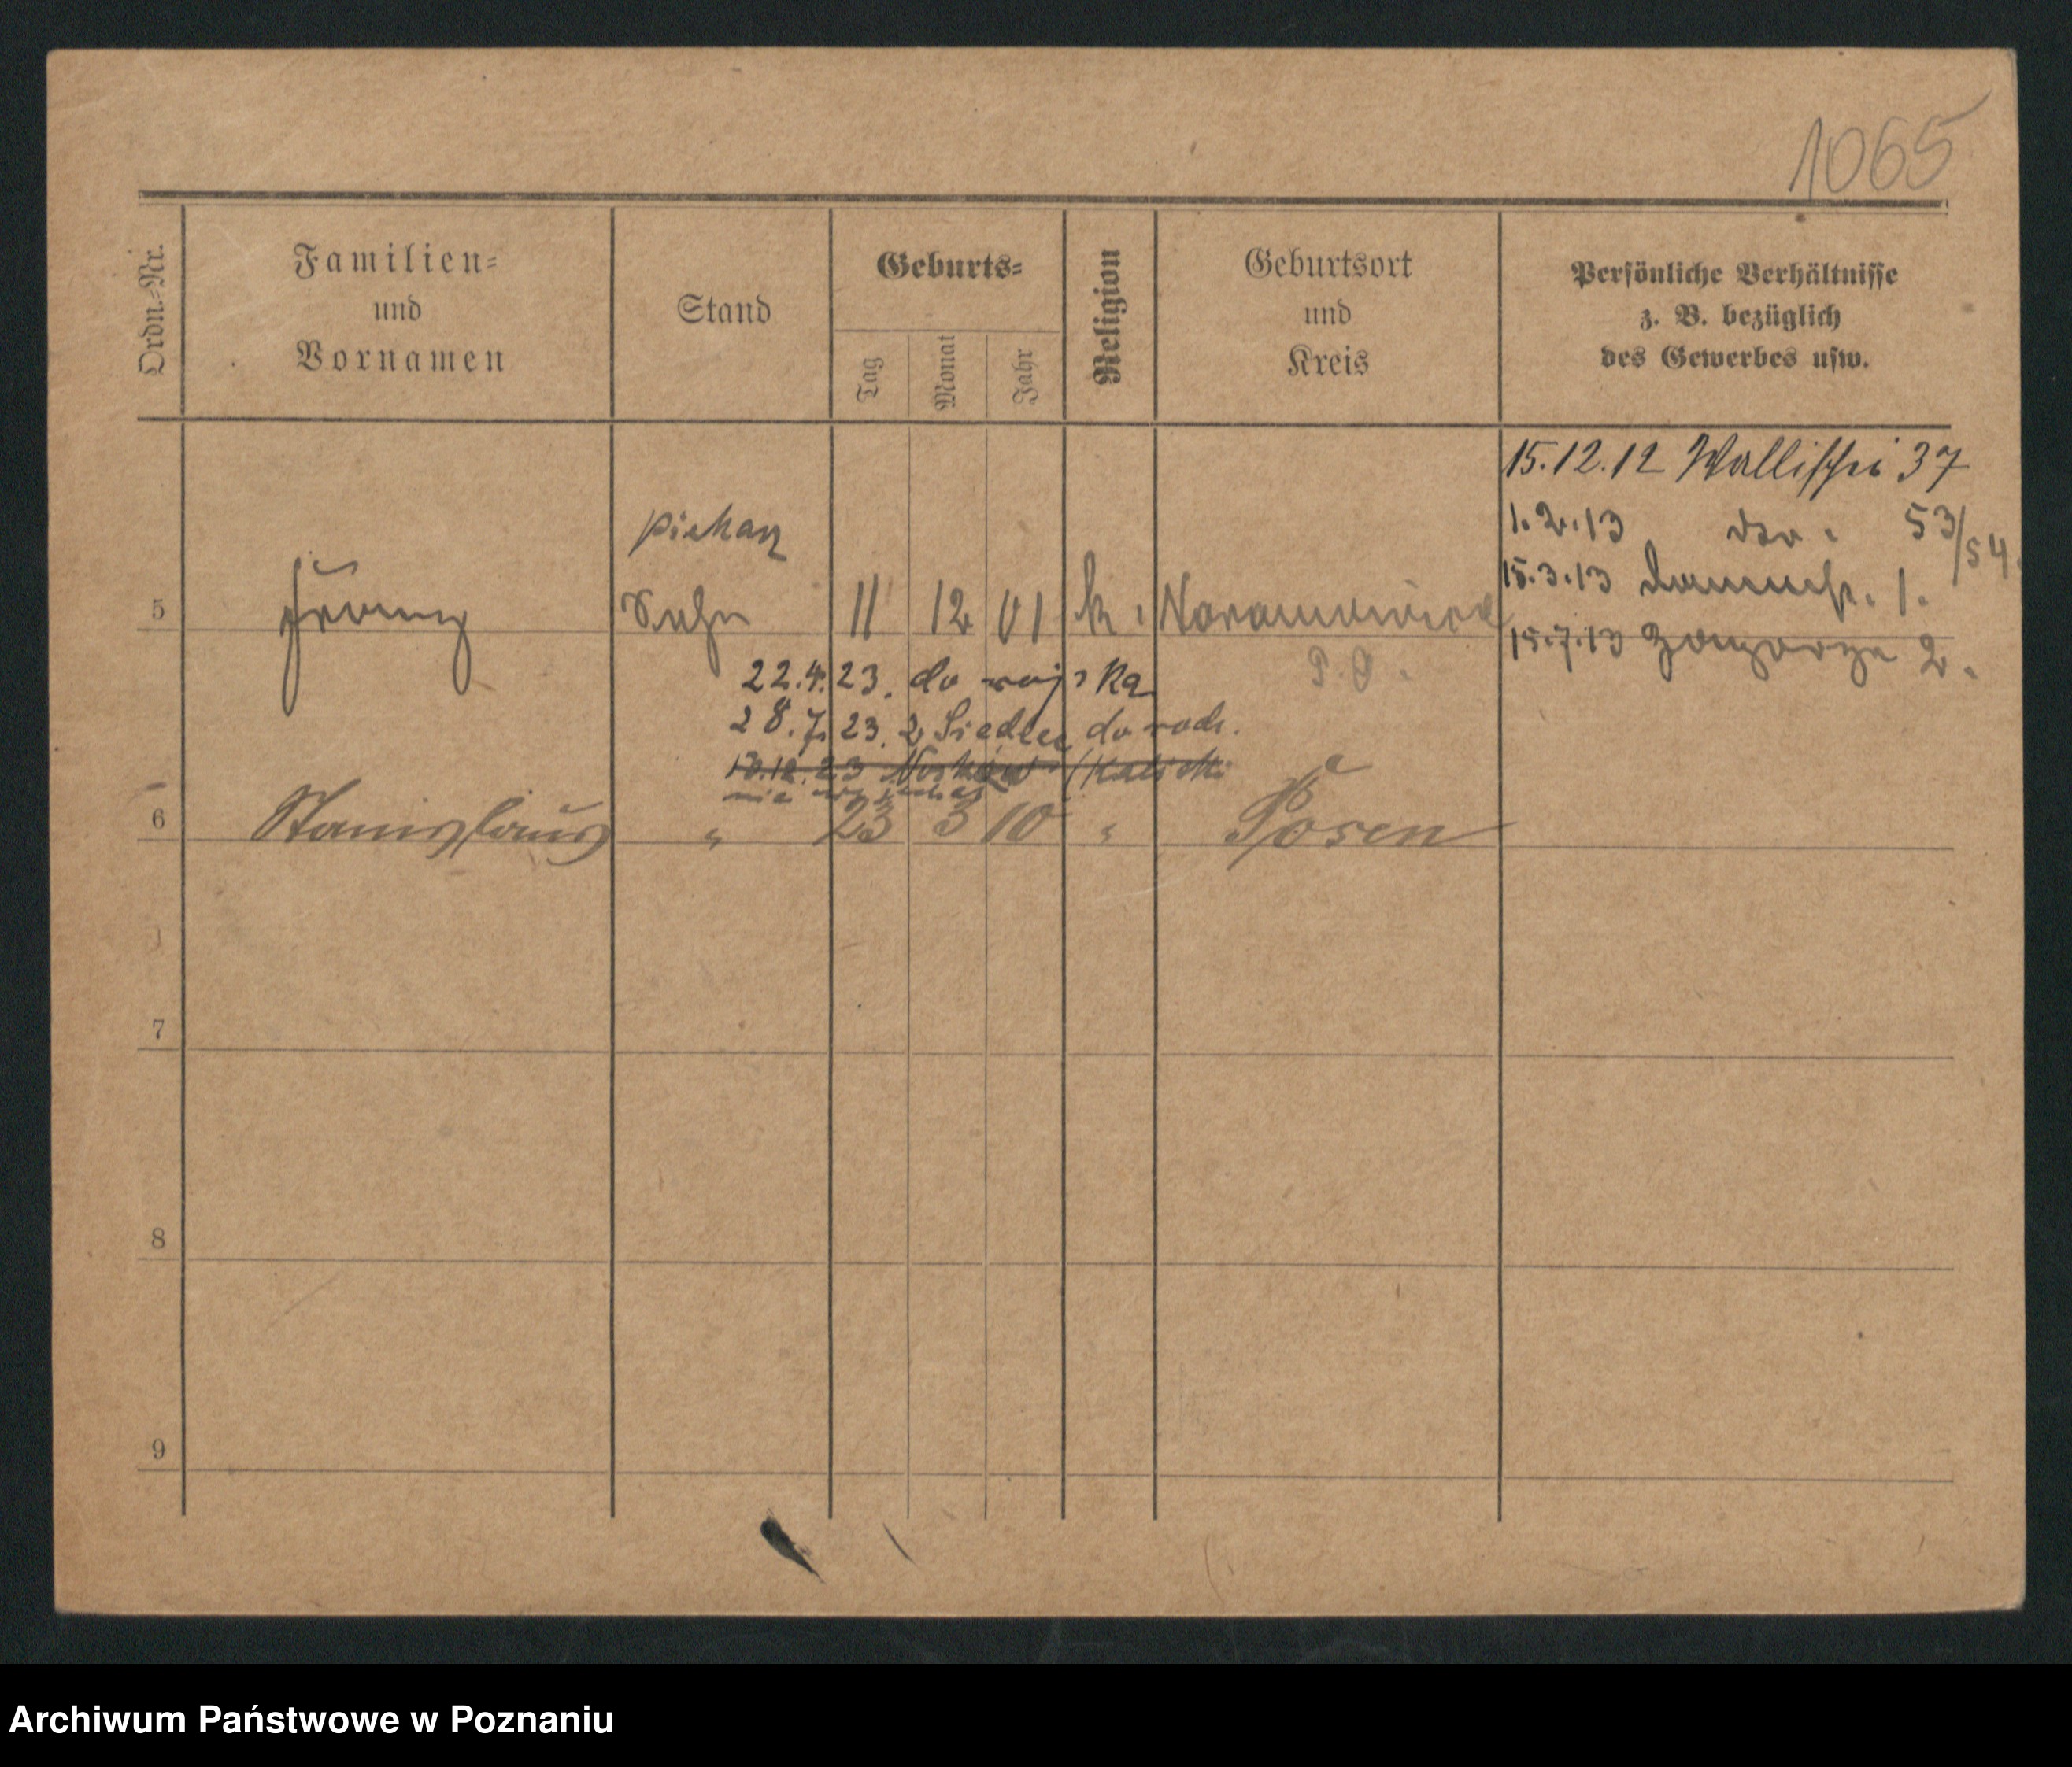 1065
Ordn.-Nr.
Familien-
und
Vornamen
Stand
Geburts-
Tag
Monat
Jahr
Religion
Geburtsort
und
Kreis
Persönliche Verhältnisse
z. B. bezüglich
des Gewerbes usw.
15.12.12 Wallischei 37
1.2.13 do. 53/54.
15.3.13 Dammstr. 1.
15.7.13 Zagorze 2.
piekarz
5 Franz Sohn 11 12 01 k.
P. O.
22.4.23. do wojska
28.7.23. z Siedlec do rodz.
13.12.23
nie wyjechał
6 Stanislaus " 23 3 10 " Posen
7
8
9
Archiwum Państwowe w Poznaniu